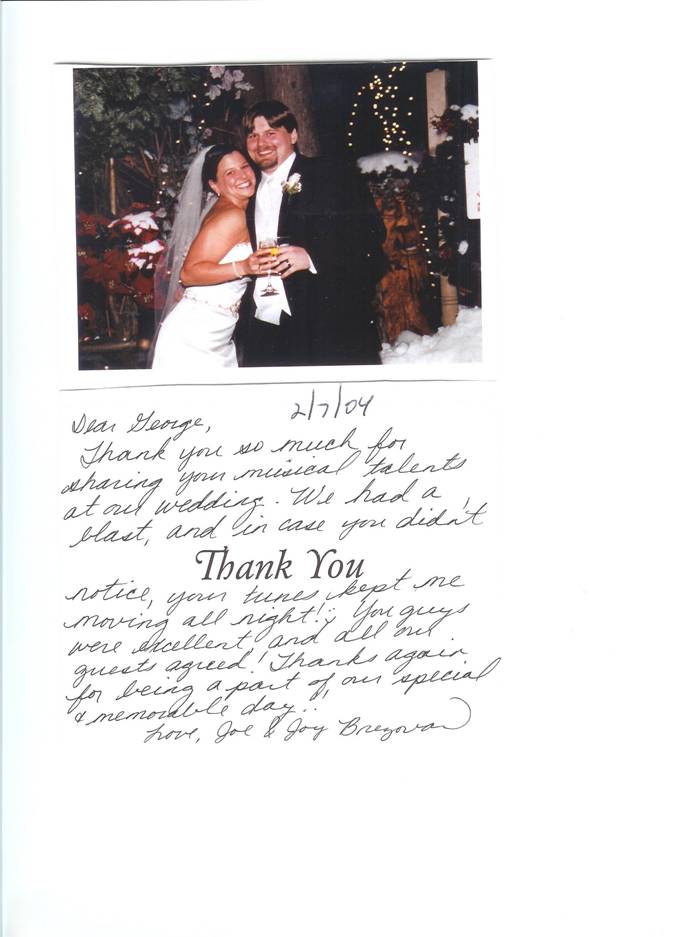 2/7/04
Dear George,
Thank you so much for
sharing your musical talents
at our wedding. We had a
blast, and in case you didn't
Thank You
notice, your tunes kept me
moving all night! You guys
were excellent and all our
guests agreed! Thanks again
for being a part of our special
& memorable day!!
Love, Joe & Joy Brezovan